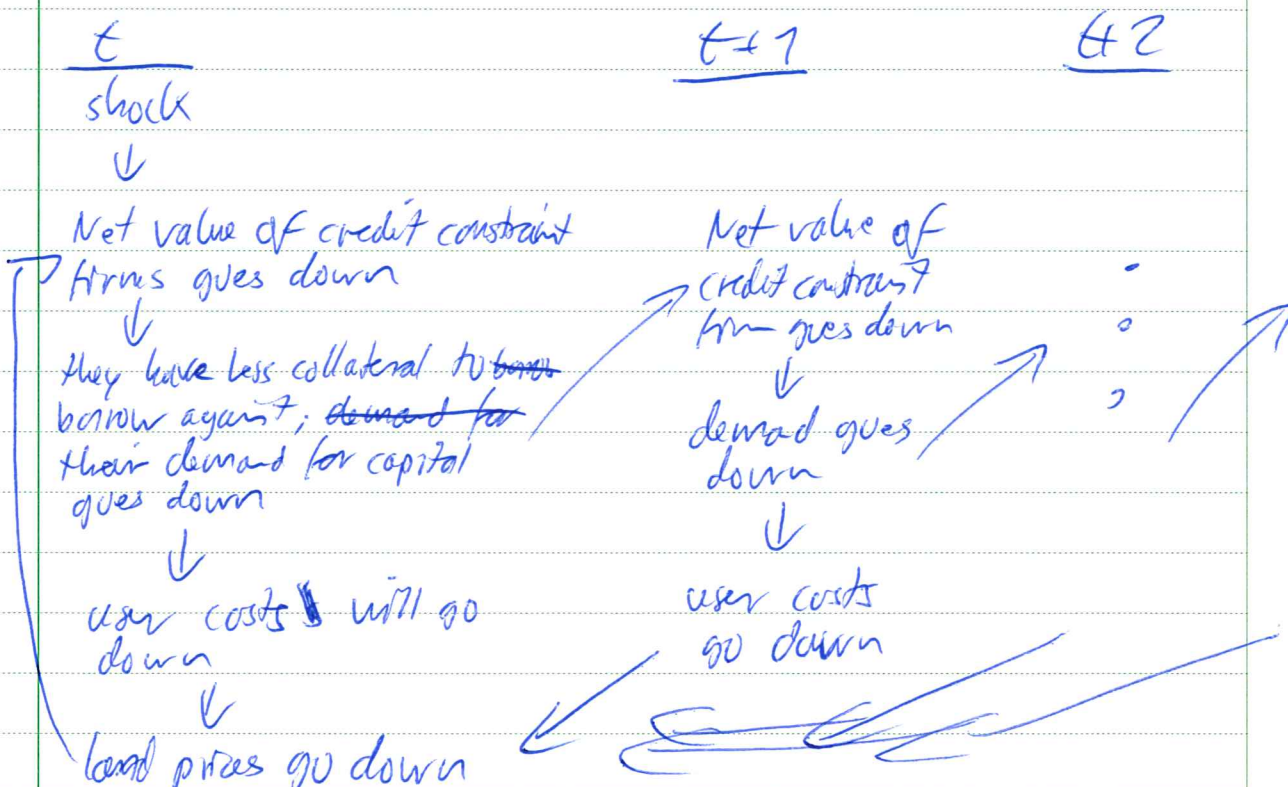 t
shock
Net value of credit constraint
firms goes down
they have less collateral to borro
borrow against; demand for
their demand for capital
goes down
user costs will go
down
land prices go down
t+1
Net value of
credit constraint
firm goes down
demad goes
down
user costs
go down
t+2